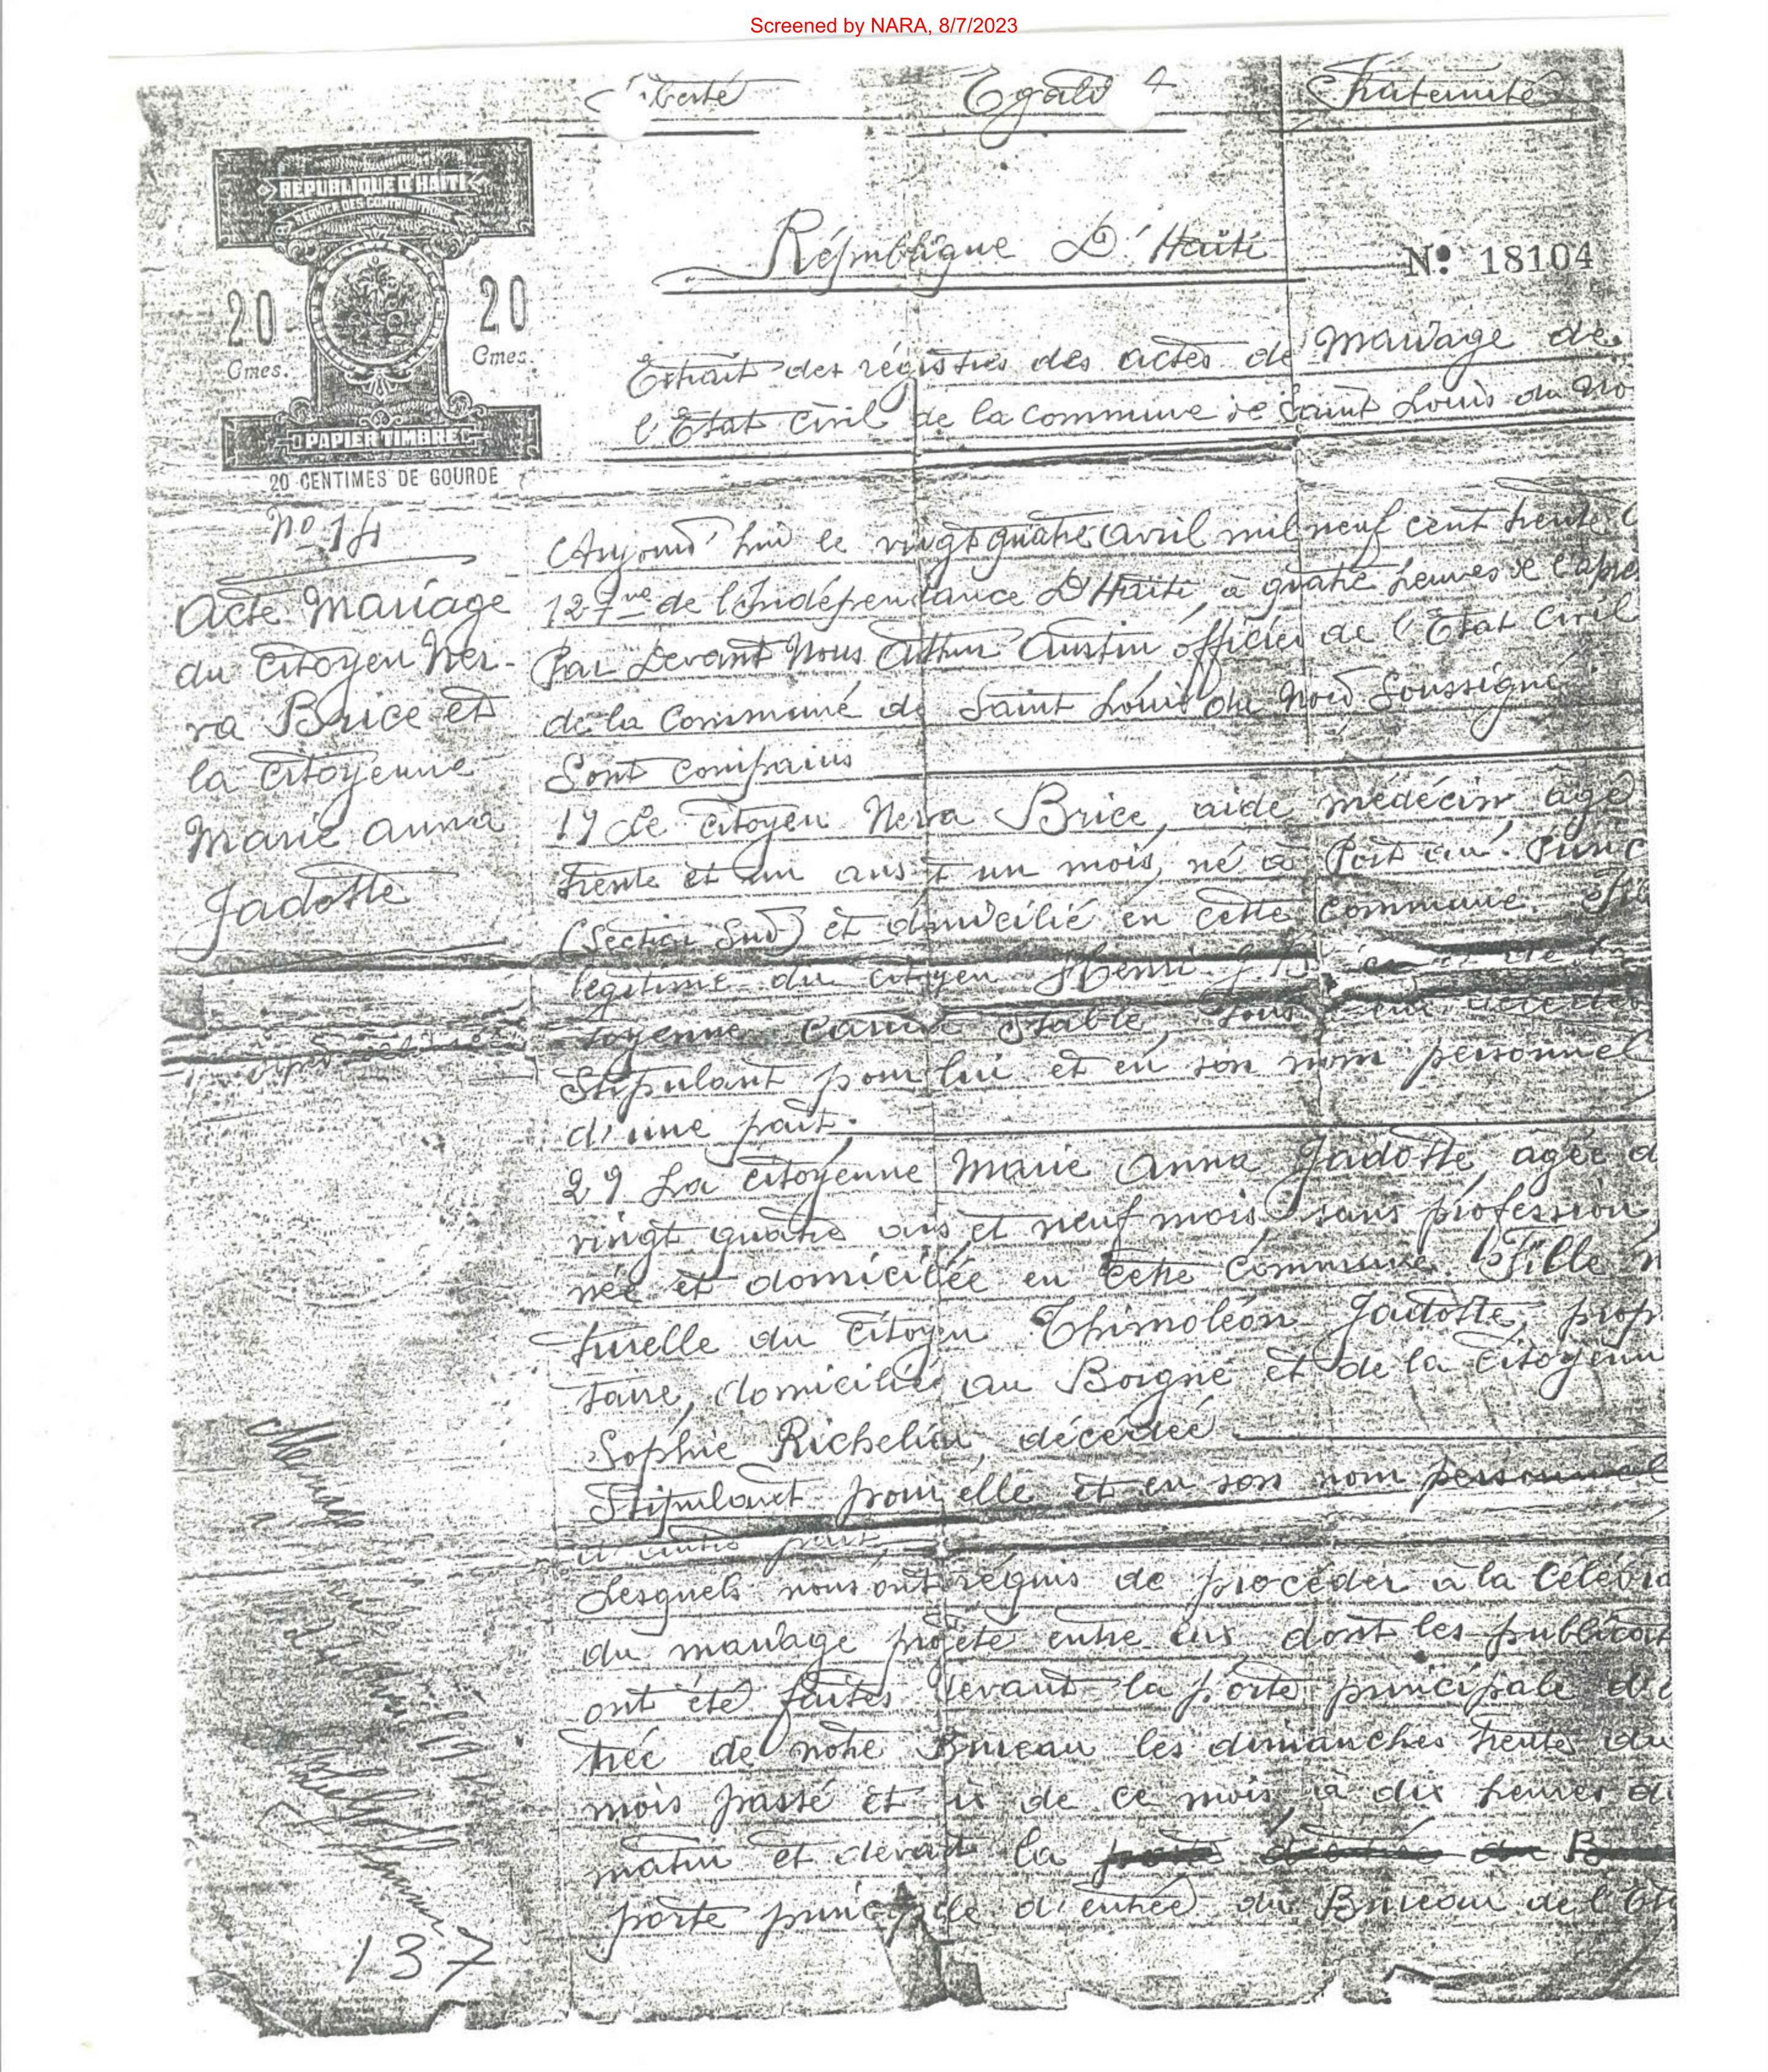 Screened by NARA, 8/7/2023
Liberté Egalité Fraternité
RÉPUBLIQUE D'HAITI
SERVICE DES CONTRIBUTIONS
20 20
Gmes. Gmes.
PAPIER TIMBRE
20 CENTIMES DE GOURDE
République D'Haïti
No. 18104
Extrait des régistres des actes de mariage de
l'Etat Civil de la Commune de Saint Louis du No
No 14
Acte Mariage
du Citoyen Ner-
va Brice et
la Citoyenne
Marie Anna
Jadotte
Aujourd'hui le vingt quatre Avril mil neuf cent trente
127me de l'Indépendance D'Haïti, à quatre heures de l'aprè
Par Devant Nous Arthur Austin officier de l'Etat Civil
de la Commune de Saint Louis du Nord Soussigné
Sont comparus
1º Le Citoyen Nerva Brice, aide médécin, âgé
trente et un ans et un mois, né à Port au Princ
(Section Sud) et domicilié en cette Commune.
légitime du citoyen Henri
toyenne Stable, tous
Stipulant pour lui et en son nom personnel
d'une part.
2º La Citoyenne Marie Anna Jadotte, âgée d
vingt quatre ans et neuf mois, sans profession,
née et domiciliée en cette Commune. Fille n
turelle du Citoyen Thimoléon Jadotte, prop
taire, domicilié au Borgne et de la Citoyenn
Sophie Richelieu, décédée
Stipulant pour elle et en son nom personnel
d'autre part,
Lesquels nous ont réquis de procéder à la célébra
du mariage projeté entre eux dont les publicat
ont été faites devant la porte principale d'e
trée de notre Bureau les dimanches trente du
mois passé et six de ce mois, à dix heures du
matin et devant la porte d'entrée du Bu
porte principale d'entrée du Bureau de l'Et
Mariage
137